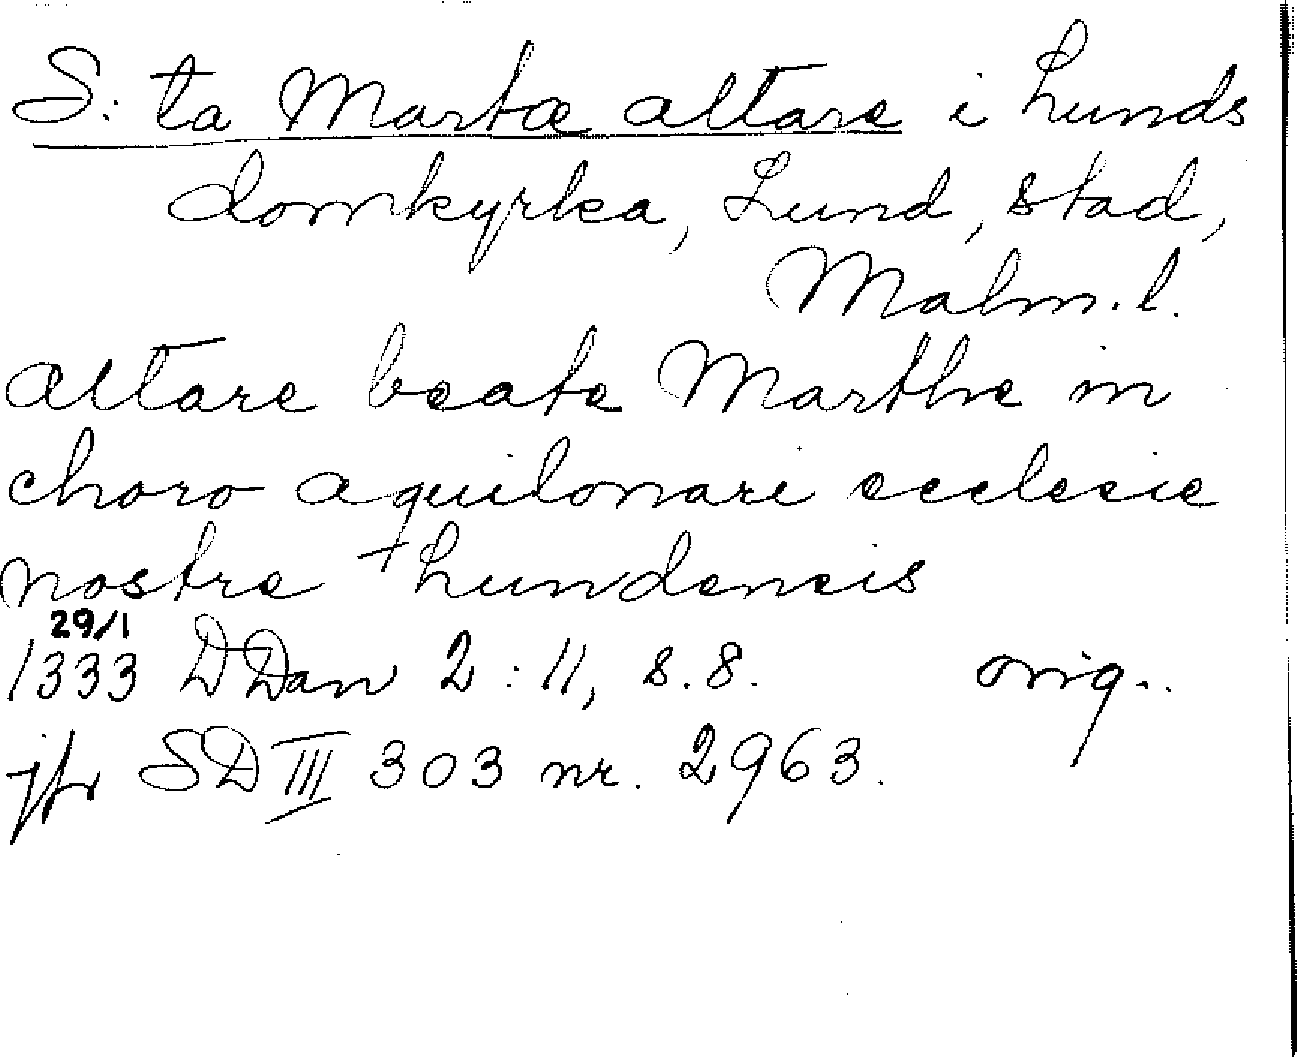 S:ta Martæ altare i Lunds
domkyrka, Lund, stad,
Malm.l.
altare beate Marthe in
choro aquilonari ecclesie
nostre +Lundensis
29/1
1333 DDan 2:11, s.8. orig..
jfr SD III 303 nr. 2963.